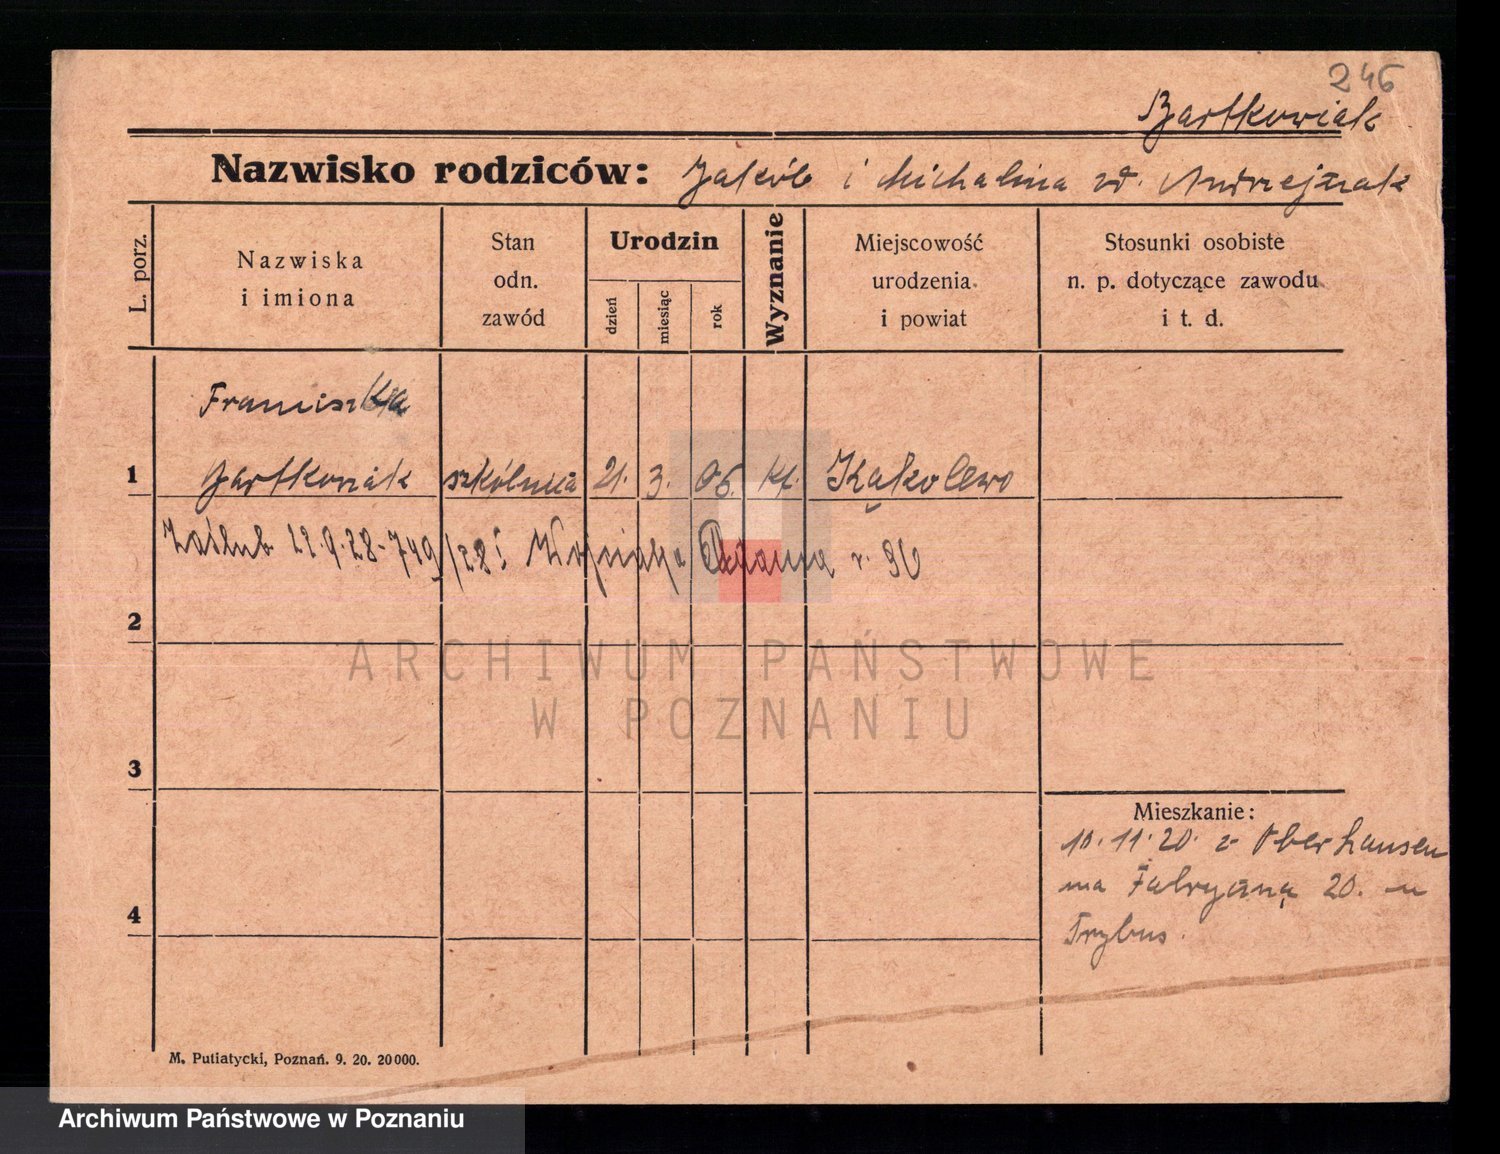 246
Bartkowiak
Nazwisko rodziców: Jakób i Michalina zd. Andrzejczak
L. porz.
Nazwiska
i imiona
Stan
odn.
zawód
Urodzin
dzień
miesiąc
rok
Wyznanie
Miejscowość
urodzenia
i powiat
Stosunki osobiste
n. p. dotyczące zawodu
i t. d.
Franciszka
1 Bartkowiak szkólna 21. 3. 06. kt. Kąkolewo
Zaślub 22.9.28 - 749/28 Adama r. 90
2
ARCHIWUM PAŃSTWOWE
W POZNANIU
3
Mieszkanie:
10.11.20. z Oberhausen
na Fabryczną 20. u
Trybus.
4
M. Putiatycki, Poznań. 9. 20. 20000.
Archiwum Państwowe w Poznaniu